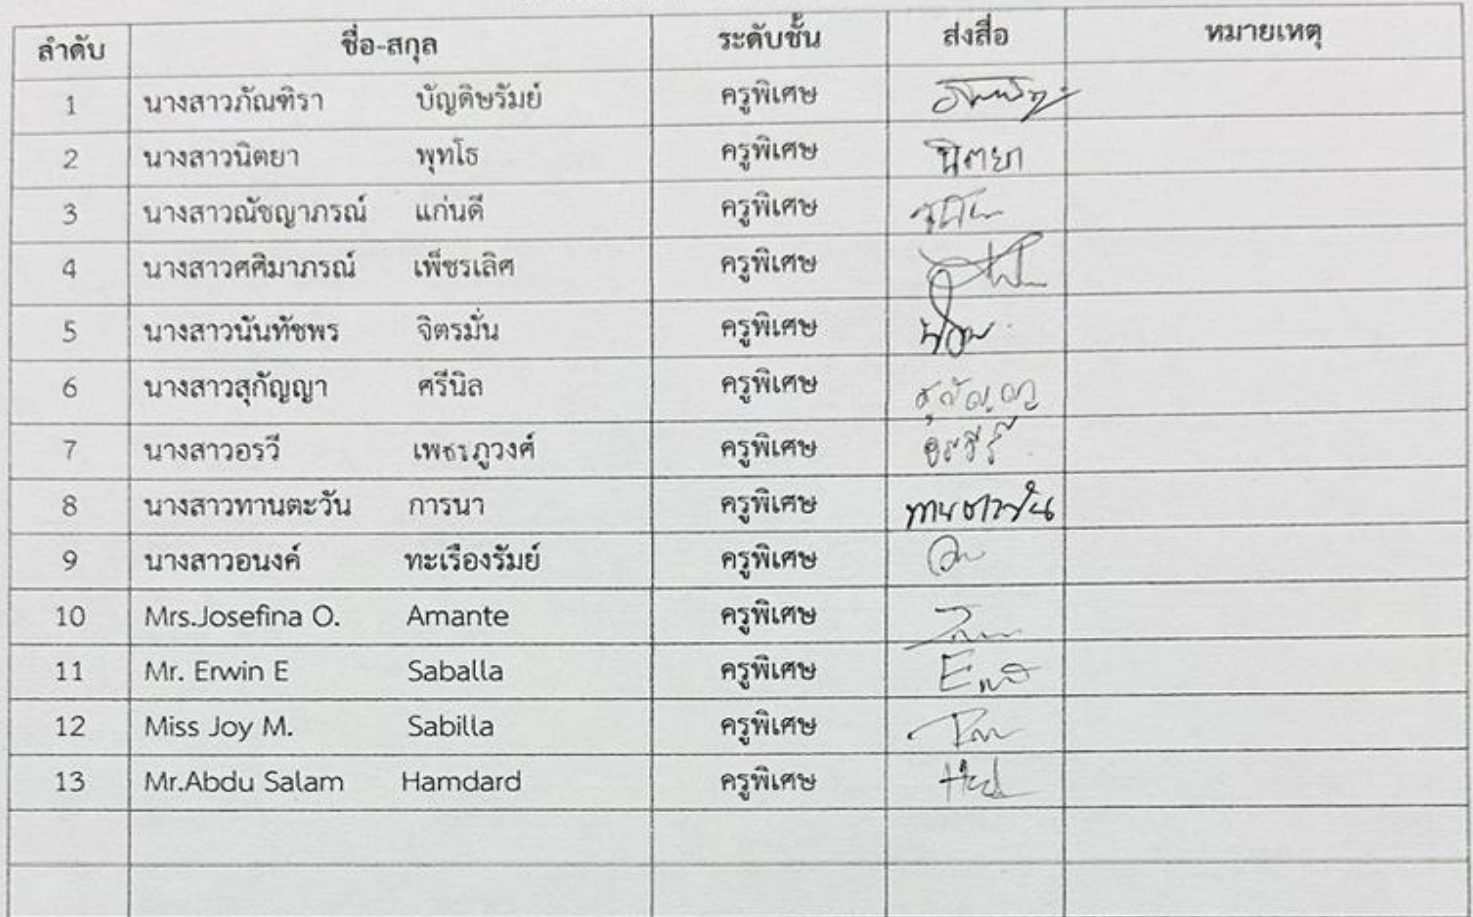 ลำดับ ชื่อ-สกุล ระดับชั้น ส่งสื่อ หมายเหตุ
1 นางสาวภัณฑิรา บัญดิษรัมย์ ครูพิเศษ
2 นางสาวนิตยา พุทโธ ครูพิเศษ นิตยา
3 นางสาวณัชญาภรณ์ แก่นดี ครูพิเศษ
4 นางสาวศศิมาภรณ์ เพ็ชรเลิศ ครูพิเศษ
5 นางสาวนันทัชพร จิตรมั่น ครูพิเศษ
6 นางสาวสุกัญญา ศรีนิล ครูพิเศษ สุกัญญา
7 นางสาวอรวี ครูพิเศษ
8 นางสาวทานตะวัน การนา ครูพิเศษ ทานตะวัน
9 นางสาวอนงค์ ทะเรืองรัมย์ ครูพิเศษ
10 Mrs.Josefina O. Amante ครูพิเศษ
11 Mr. Erwin E Saballa ครูพิเศษ
12 Miss Joy M. Sabilla ครูพิเศษ
13 Mr.Abdu Salam Hamdard ครูพิเศษ